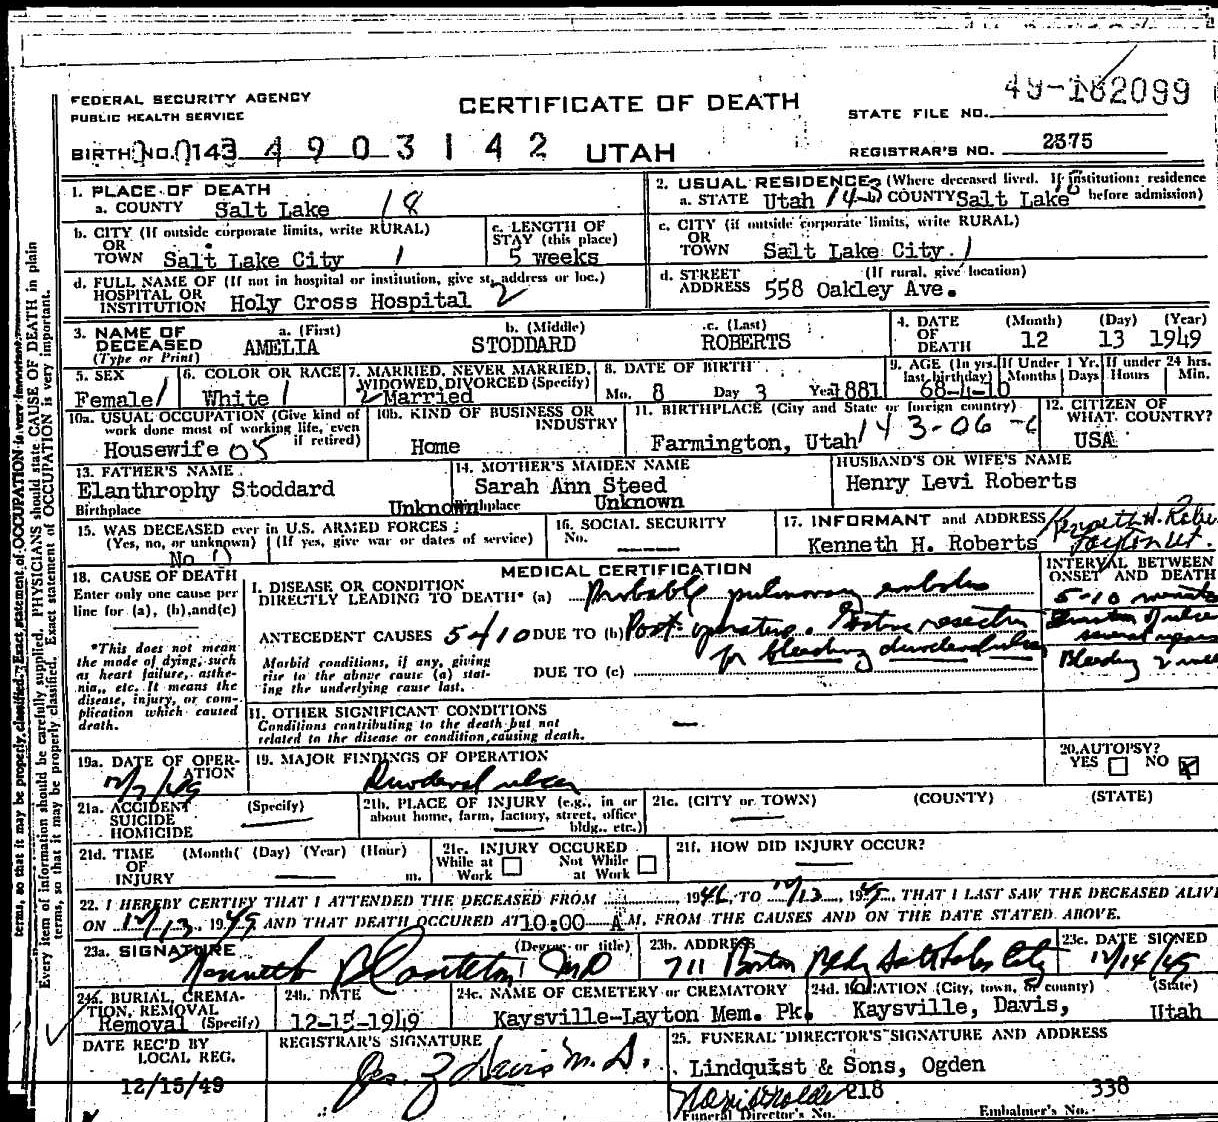 FEDERAL SECURITY AGENCY
PUBLIC HEALTH SERVICE
CERTIFICATE OF DEATH
49-182099
STATE FILE NO.
BIRTH NO. 0143 4 9 0 3 1 4 2 UTAH
REGISTRAR'S NO. 2375
1. PLACE OF DEATH
a. COUNTY Salt Lake 18
2. USUAL RESIDENCE (Where deceased lived. If institution: residence before admission)
a. STATE Utah COUNTY Salt Lake
b. CITY (If outside corporate limits, write RURAL)
OR
TOWN Salt Lake City 1
c. LENGTH OF
STAY (this place)
5 weeks
c. CITY (if outside corporate limits, write RURAL)
OR
TOWN Salt Lake City 1
d. FULL NAME OF (If not in hospital or institution, give st. address or loc.)
HOSPITAL OR
INSTITUTION Holy Cross Hospital 2
d. STREET (If rural, give location)
ADDRESS 558 Oakley Ave.
3. NAME OF DECEASED (Type or Print)
a. (First) b. (Middle) c. (Last)
AMELIA STODDARD ROBERTS
4. DATE OF DEATH (Month) (Day) (Year)
12 13 1949
5. SEX
Female 1
6. COLOR OR RACE
White 1
7. MARRIED, NEVER MARRIED,
WIDOWED, DIVORCED (Specify)
2 Married
8. DATE OF BIRTH
Mo. 8 Day 3 Year 1881
9. AGE (In yrs. last birthday) If Under 1 Yr. Months Days If under 24 hrs. Hours Min.
68-4-10
10a. USUAL OCCUPATION (Give kind of
work done most of working life, even
if retired)
Housewife 05
10b. KIND OF BUSINESS OR
INDUSTRY
Home
11. BIRTHPLACE (City and State or foreign country)
Farmington, Utah 143-06
12. CITIZEN OF
WHAT COUNTRY?
USA
13. FATHER'S NAME
Elanthrophy Stoddard
Birthplace Unknown
14. MOTHER'S MAIDEN NAME
Sarah Ann Steed
Birthplace Unknown
HUSBAND'S OR WIFE'S NAME
Henry Levi Roberts
15. WAS DECEASED ever in U.S. ARMED FORCES
(Yes, no, or unknown) (If yes, give war or dates of service)
No 0
16. SOCIAL SECURITY
No.
17. INFORMANT and ADDRESS Kenneth H. Robe
Kenneth H. Roberts Layton Ut.
18. CAUSE OF DEATH
Enter only one cause per
line for (a), (b), and (c)
*This does not mean
the mode of dying, such
as heart failure, asthe-
nia, etc. It means the
disease, injury, or com-
plication which caused
death.
MEDICAL CERTIFICATION
INTERVAL BETWEEN
ONSET AND DEATH
I. DISEASE OR CONDITION
DIRECTLY LEADING TO DEATH* (a) Probable pulmonary embolus
5-10
ANTECEDENT CAUSES 5410 DUE TO (b) Post-operative. Gastric resection
for bleeding duodenal ulcer
Duration of ulcer
several years
Bleeding 2
Morbid conditions, if any, giving
rise to the above cause (a) stat-
ing the underlying cause last.
DUE TO (c)
II. OTHER SIGNIFICANT CONDITIONS
Conditions contributing to the death but not
related to the disease or condition, causing death.
19a. DATE OF OPER-
ATION
12/7/49
19. MAJOR FINDINGS OF OPERATION
Duodenal ulcer
20. AUTOPSY?
YES NO
21a. ACCIDENT (Specify)
SUICIDE
HOMICIDE
21b. PLACE OF INJURY (e.g., in or
about home, farm, factory, street, office
bldg., etc.)
21c. (CITY or TOWN) (COUNTY) (STATE)
21d. TIME (Month) (Day) (Year) (Hour)
OF
INJURY m.
21e. INJURY OCCURED
While at Work Not While at Work
21f. HOW DID INJURY OCCUR?
22. I HEREBY CERTIFY THAT I ATTENDED THE DECEASED FROM 1946, TO 12/13, 1949, THAT I LAST SAW THE DECEASED ALIVE
ON 12/13, 1949 AND THAT DEATH OCCURED AT 10:00 A M. FROM THE CAUSES AND ON THE DATE STATED ABOVE.
23a. SIGNATURE (Degree or title)
Kenneth B Castleton MD
23b. ADDRESS
711 Boston Bldg Salt Lake City
23c. DATE SIGNED
12/14/49
24a. BURIAL, CREMA-
TION, REMOVAL
Removal (Specify)
24b. DATE
12-15-1949
24c. NAME OF CEMETERY or CREMATORY
Kaysville-Layton Mem. Pk.
24d. LOCATION (City, town, or county) (State)
Kaysville, Davis, Utah
DATE REC'D BY
LOCAL REG.
12/15/49
REGISTRAR'S SIGNATURE
25. FUNERAL DIRECTOR'S SIGNATURE AND ADDRESS
Lindquist & Sons, Ogden
218 338
Funeral Director's No. Embalmer's No.
Every item of information should be carefully supplied. PHYSICIANS should state CAUSE OF DEATH in plain
terms, so that it may be properly classified. Exact statement of OCCUPATION is very important.